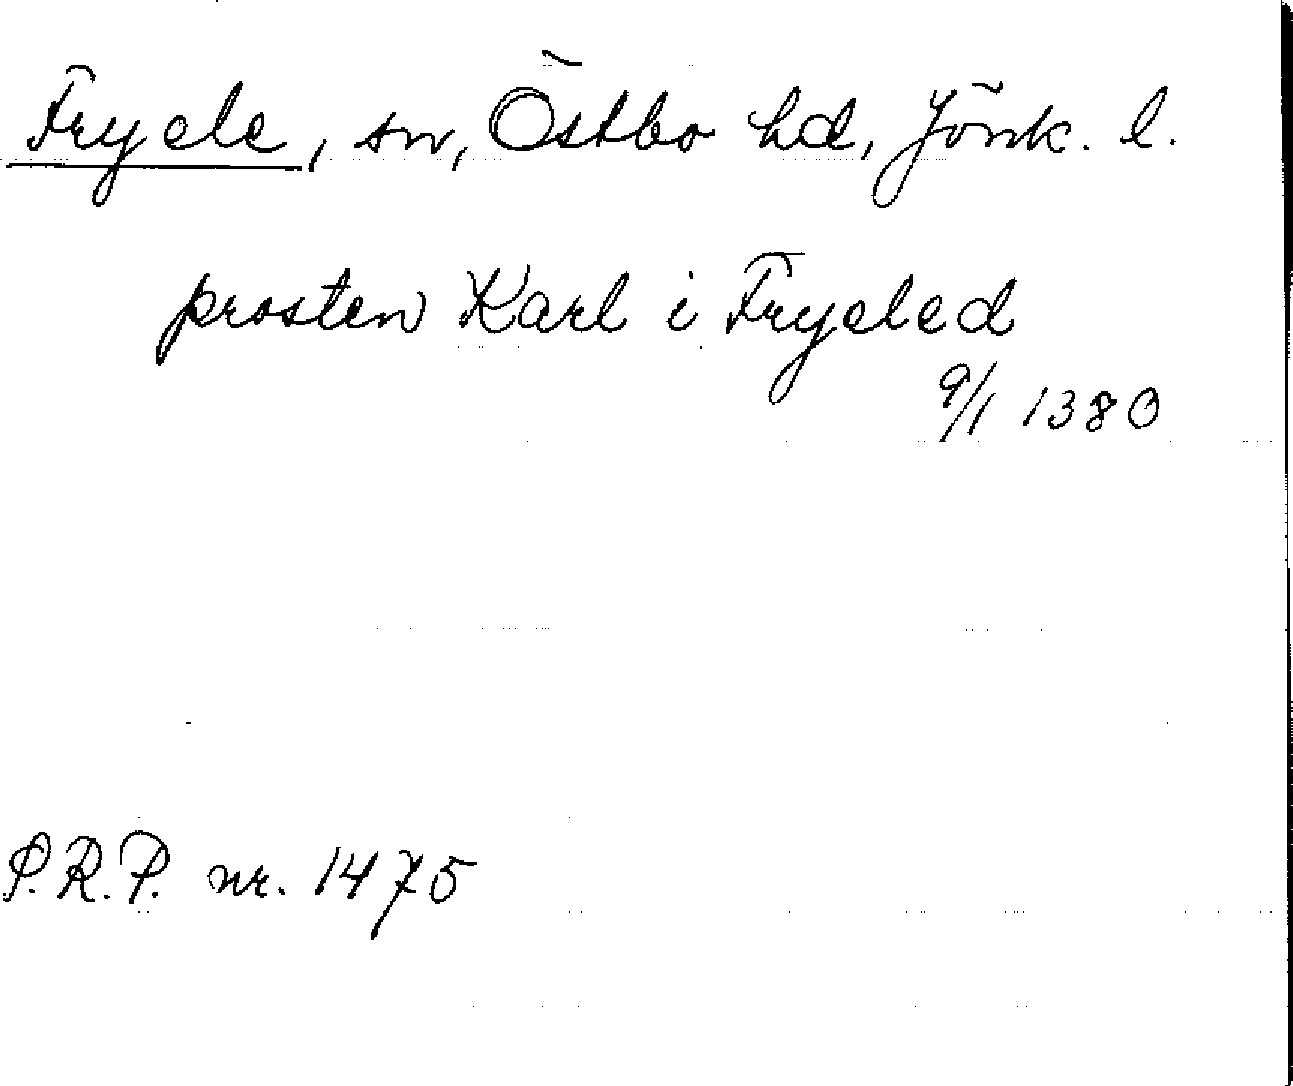 Fryele, sn, Östbo hd, Jönk. l.
prosten Karl i Fryeled
9/1 1380
P.R.P. nr. 1475